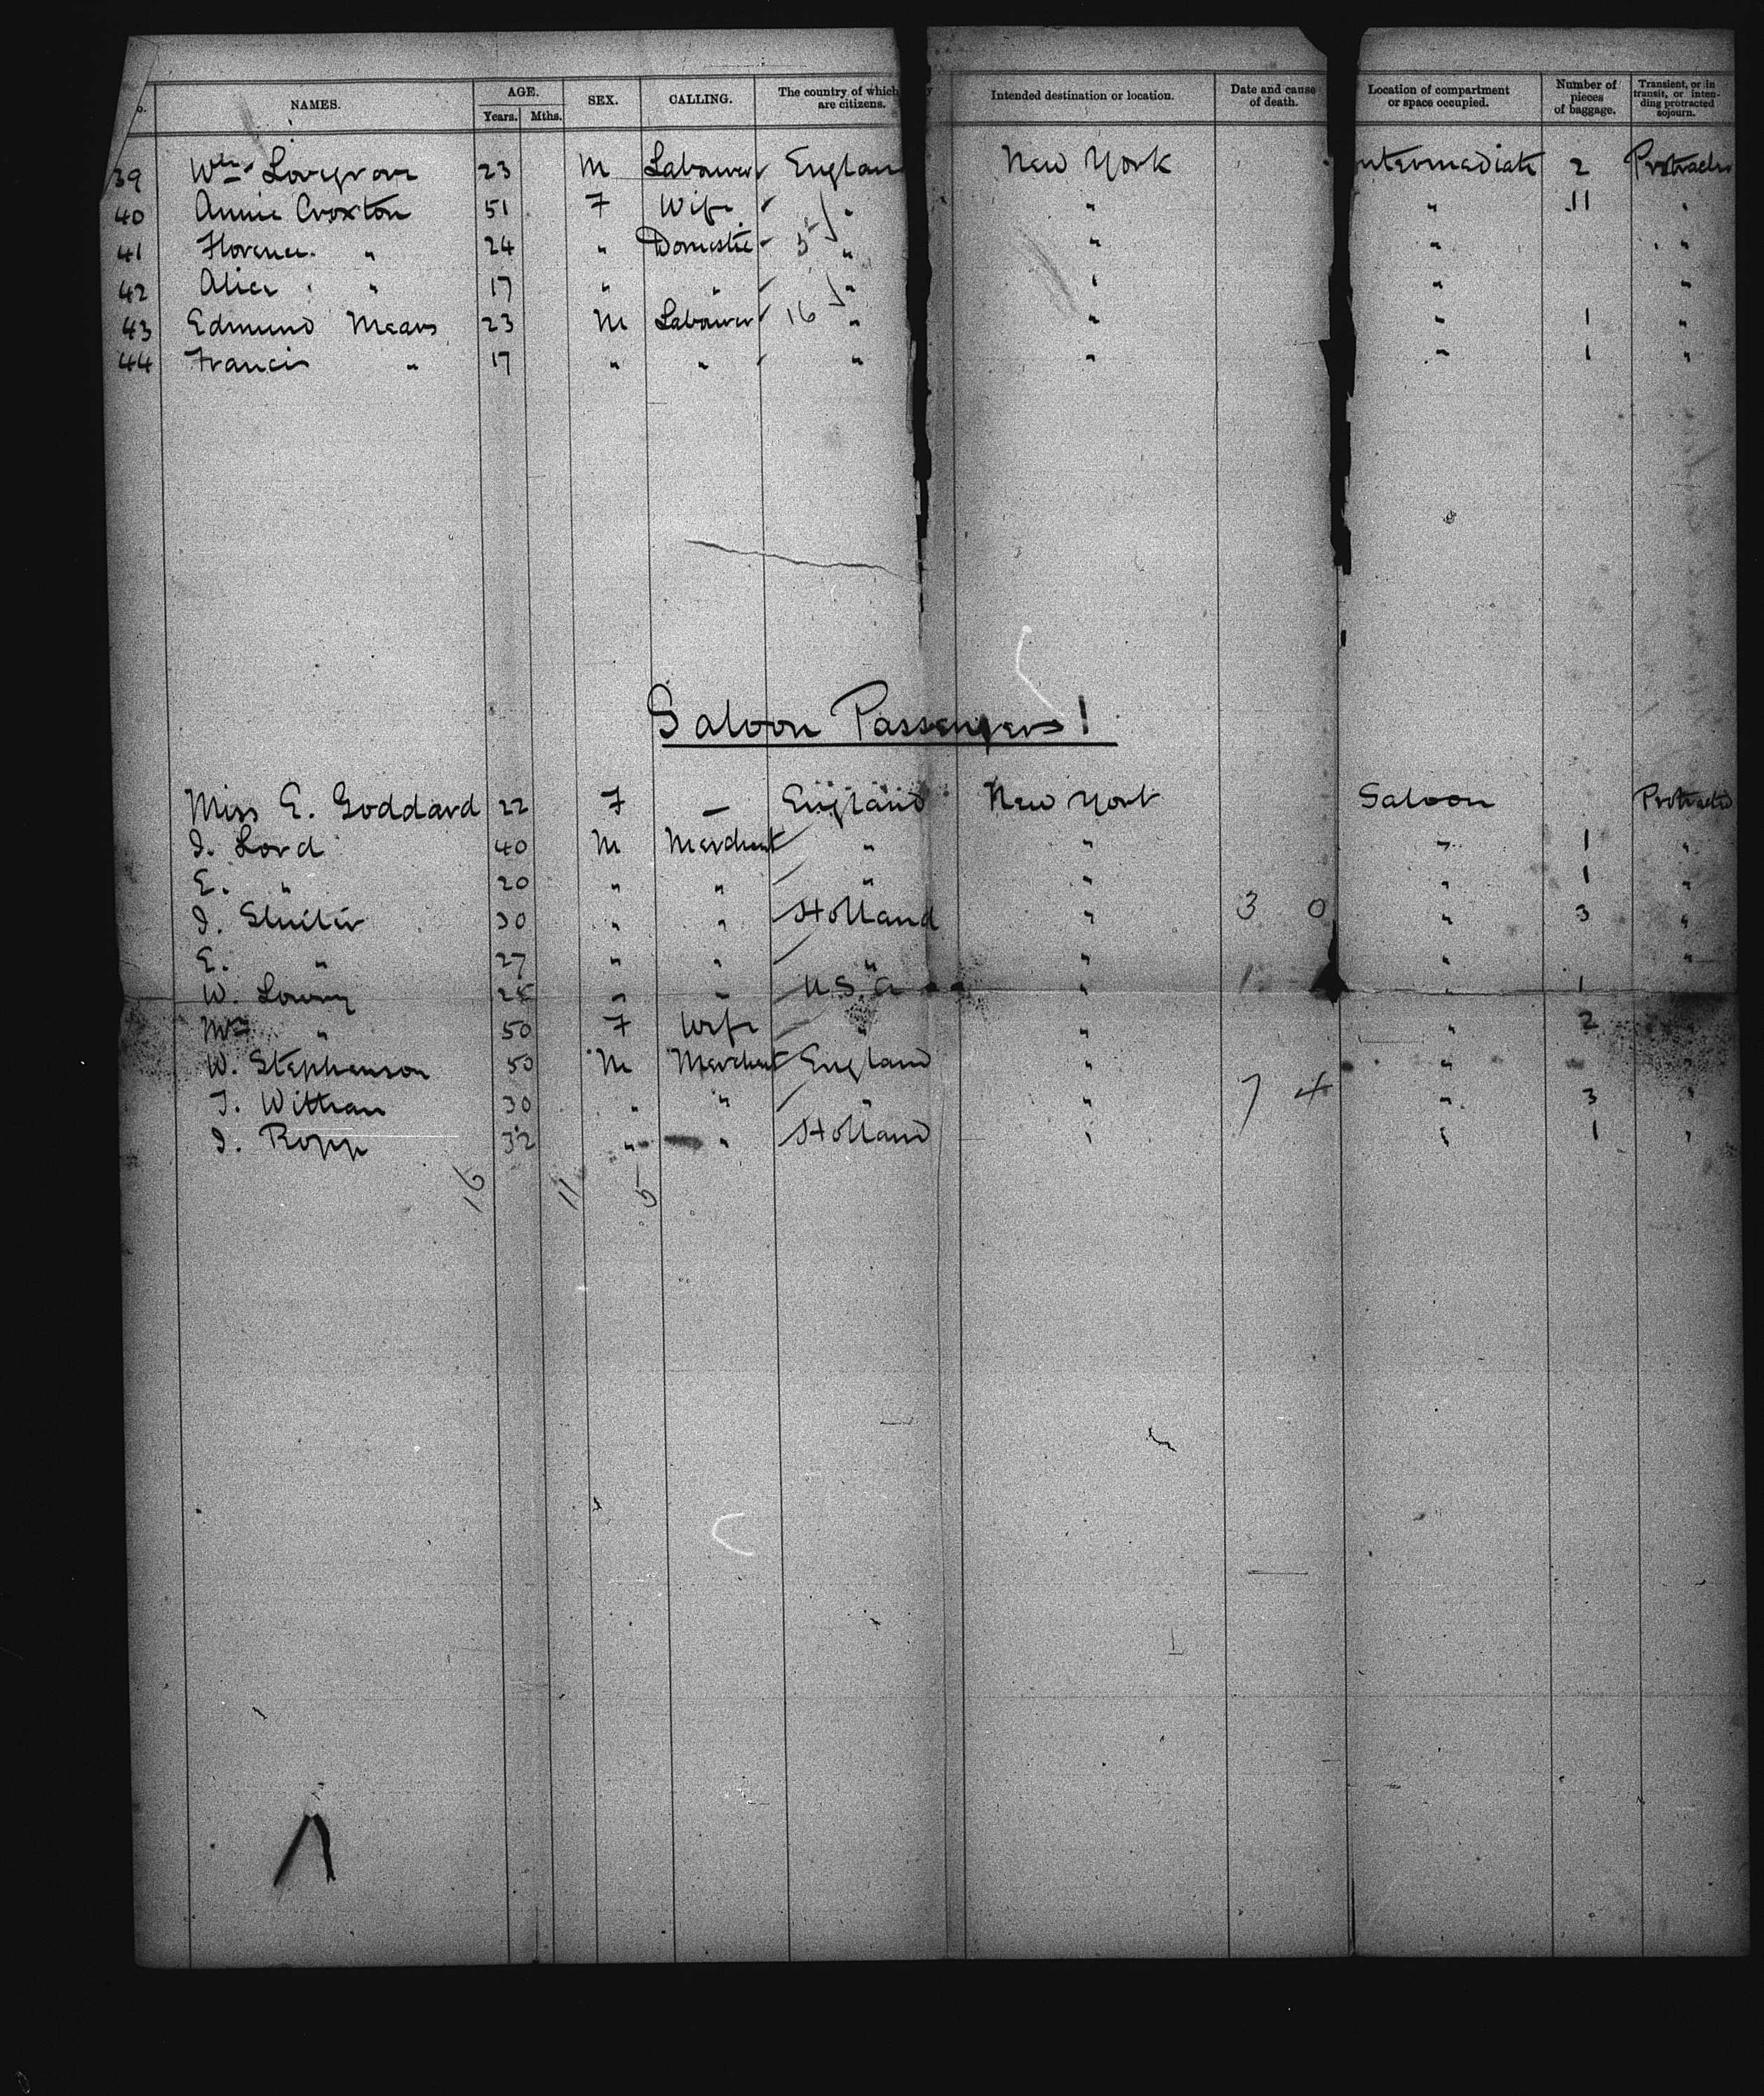 o. NAMES. AGE. Years. Mths. SEX. CALLING. The country of which are citizens. Intended destination or location. Date and cause of death. Location of compartment or space occupied. Number of pieces of baggage. Transient, or in transit, or intending protracted sojourn.
39 Wm Lovegrove 23 M Labourer England New York ntermediate 2 Protracted
40 Annie Croxton 51 F Wife " " " 11 "
41 Florence " 24 " Domestic 5 " " " "
42 Alice " 17 " " " " " "
43 Edmund Mears 23 M Labourer 16 " " " 1 "
44 Francis " 17 " " " " " 1 "
Saloon Passengers!
Miss E. Goddard 22 F — England New York Saloon Protracted
J. Lord 40 M Merchant " " " 1 "
E. " 20 " " " " " 1 "
J. Sluiter 30 " " Holland " 3 0 " 3 "
E. " 27 " " " " " "
W. Lowry " " U.S.a " 1 " 1
Mrs " 50 F Wife " " " 2 "
W. Stephenson 50 M Merchant England " " "
T. 30 " " " " 7 4 " 3 "
J. Ropp 32 " " Holland " " 1 "
16 11 5